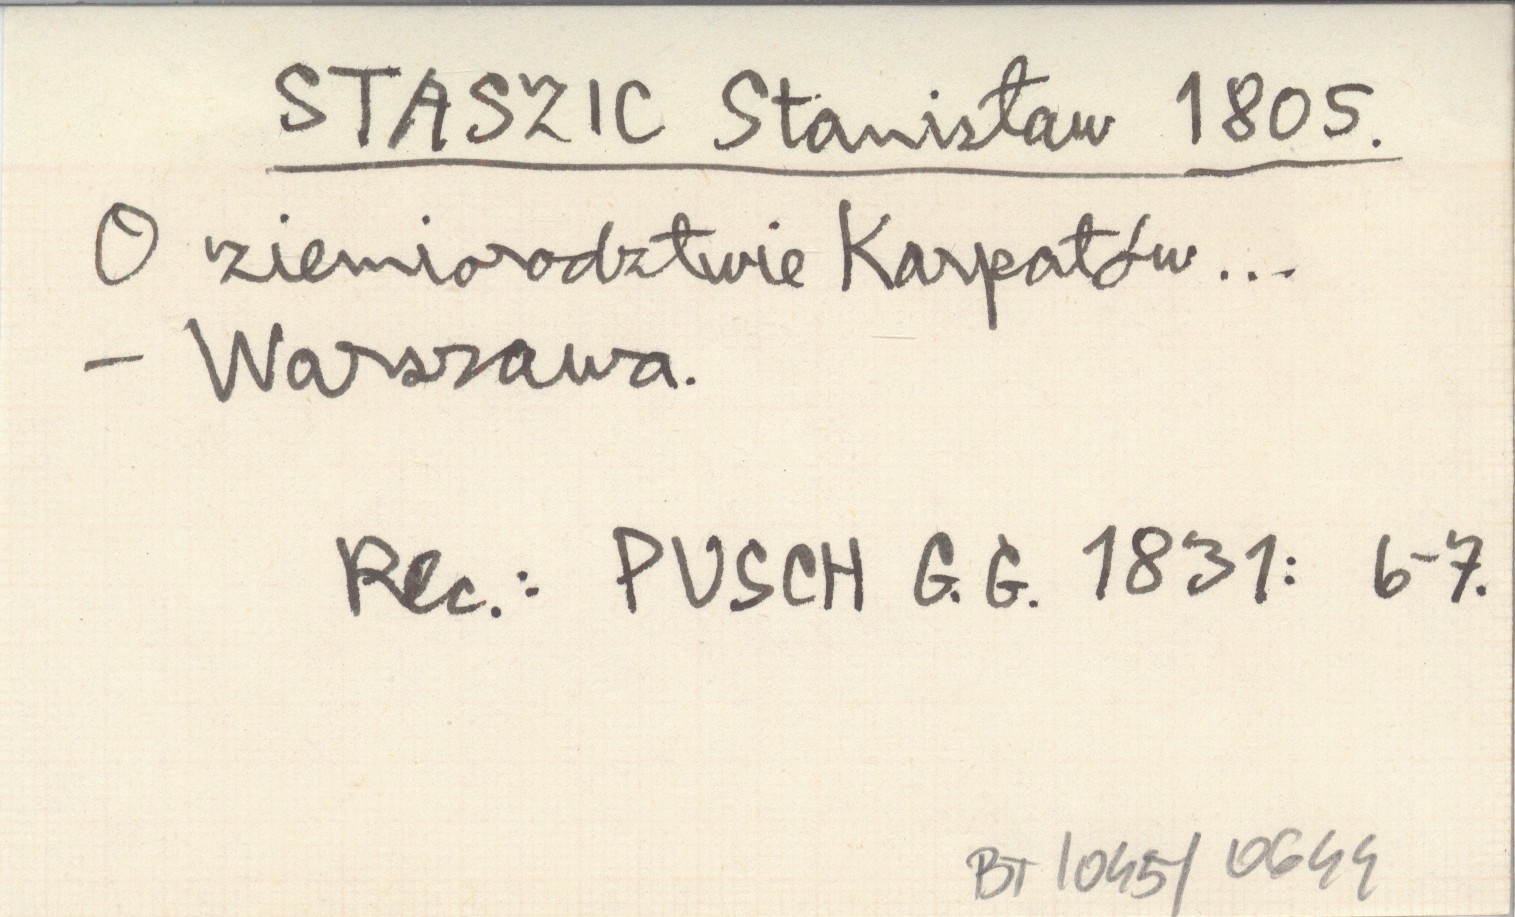 STASZIC Stanisław 1805.
O ziemiorodztwie Karpatów...
- Warszawa.
Rec.: PUSCH G.G. 1831: 6-7.
BT 1045/ 0644